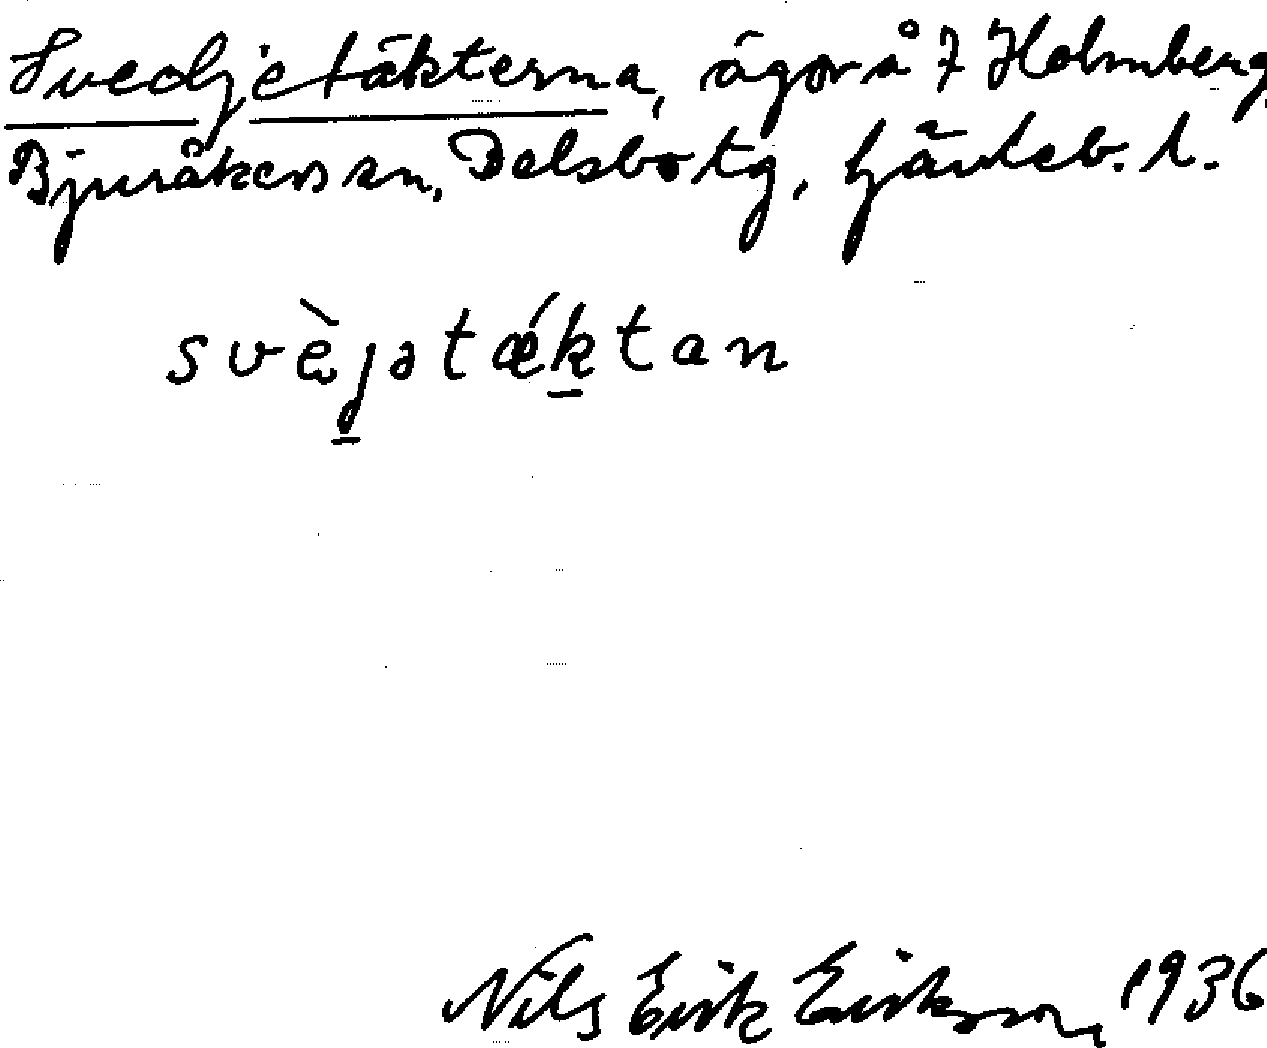 Svedjetäkterna, ägor å 7 Holmberg,
Bjuråkers sn, Delsbo tg, Gävleb. l.
svèjətǽktan
Nils Erik Eriksson, 1936